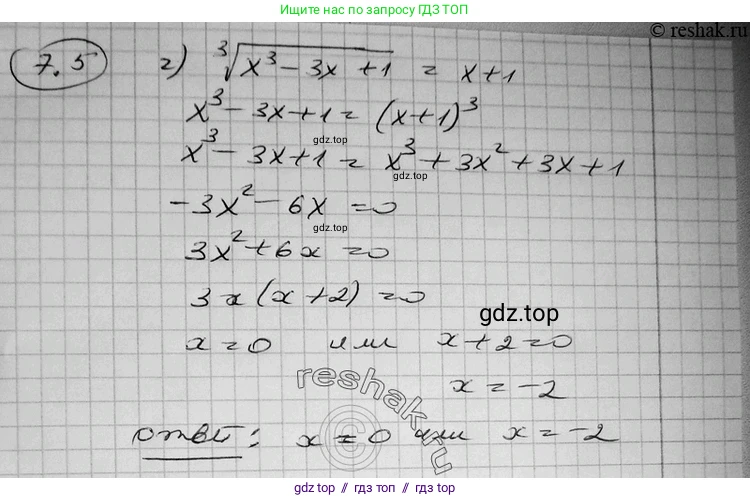 Ищите ответы по запросу ГДЗ ТОП
© reshak.ru
7.5 г) ∛(x³ − 3x + 1) = x + 1
x³ − 3x + 1 = (x + 1)³
gdz.top
x³ − 3x + 1 = x³ + 3x² + 3x + 1
gdz.top
−3x² − 6x = 0
gdz.top
3x² + 6x = 0
3x(x + 2) = 0
gdz.top
x = 0 или x + 2 = 0
x = −2
reshak.ru
©
ответ: x = 0 или x = −2
gdz.top // гдз.топ // gdz.top // гдз.топ